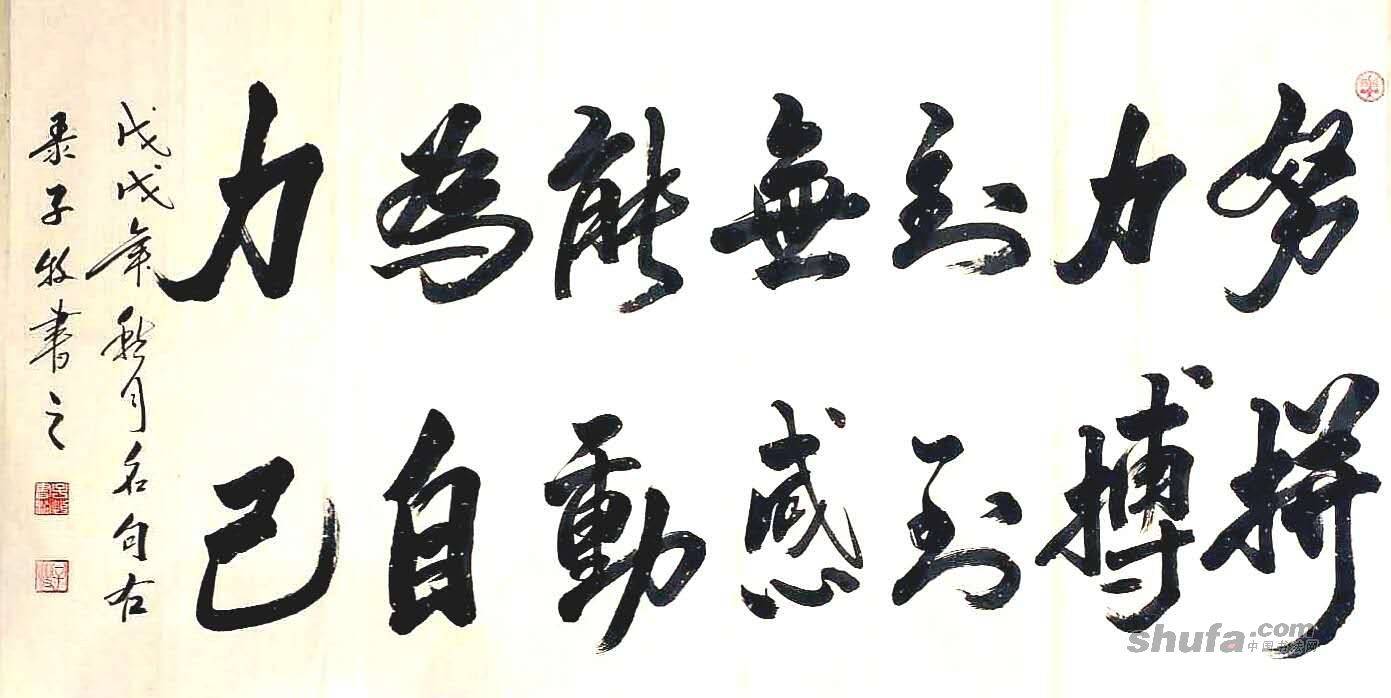 努力到無能為力
拼搏到感動自己
戊戌年秋月名句右
录子牧書之
shufa.com
中国书法网